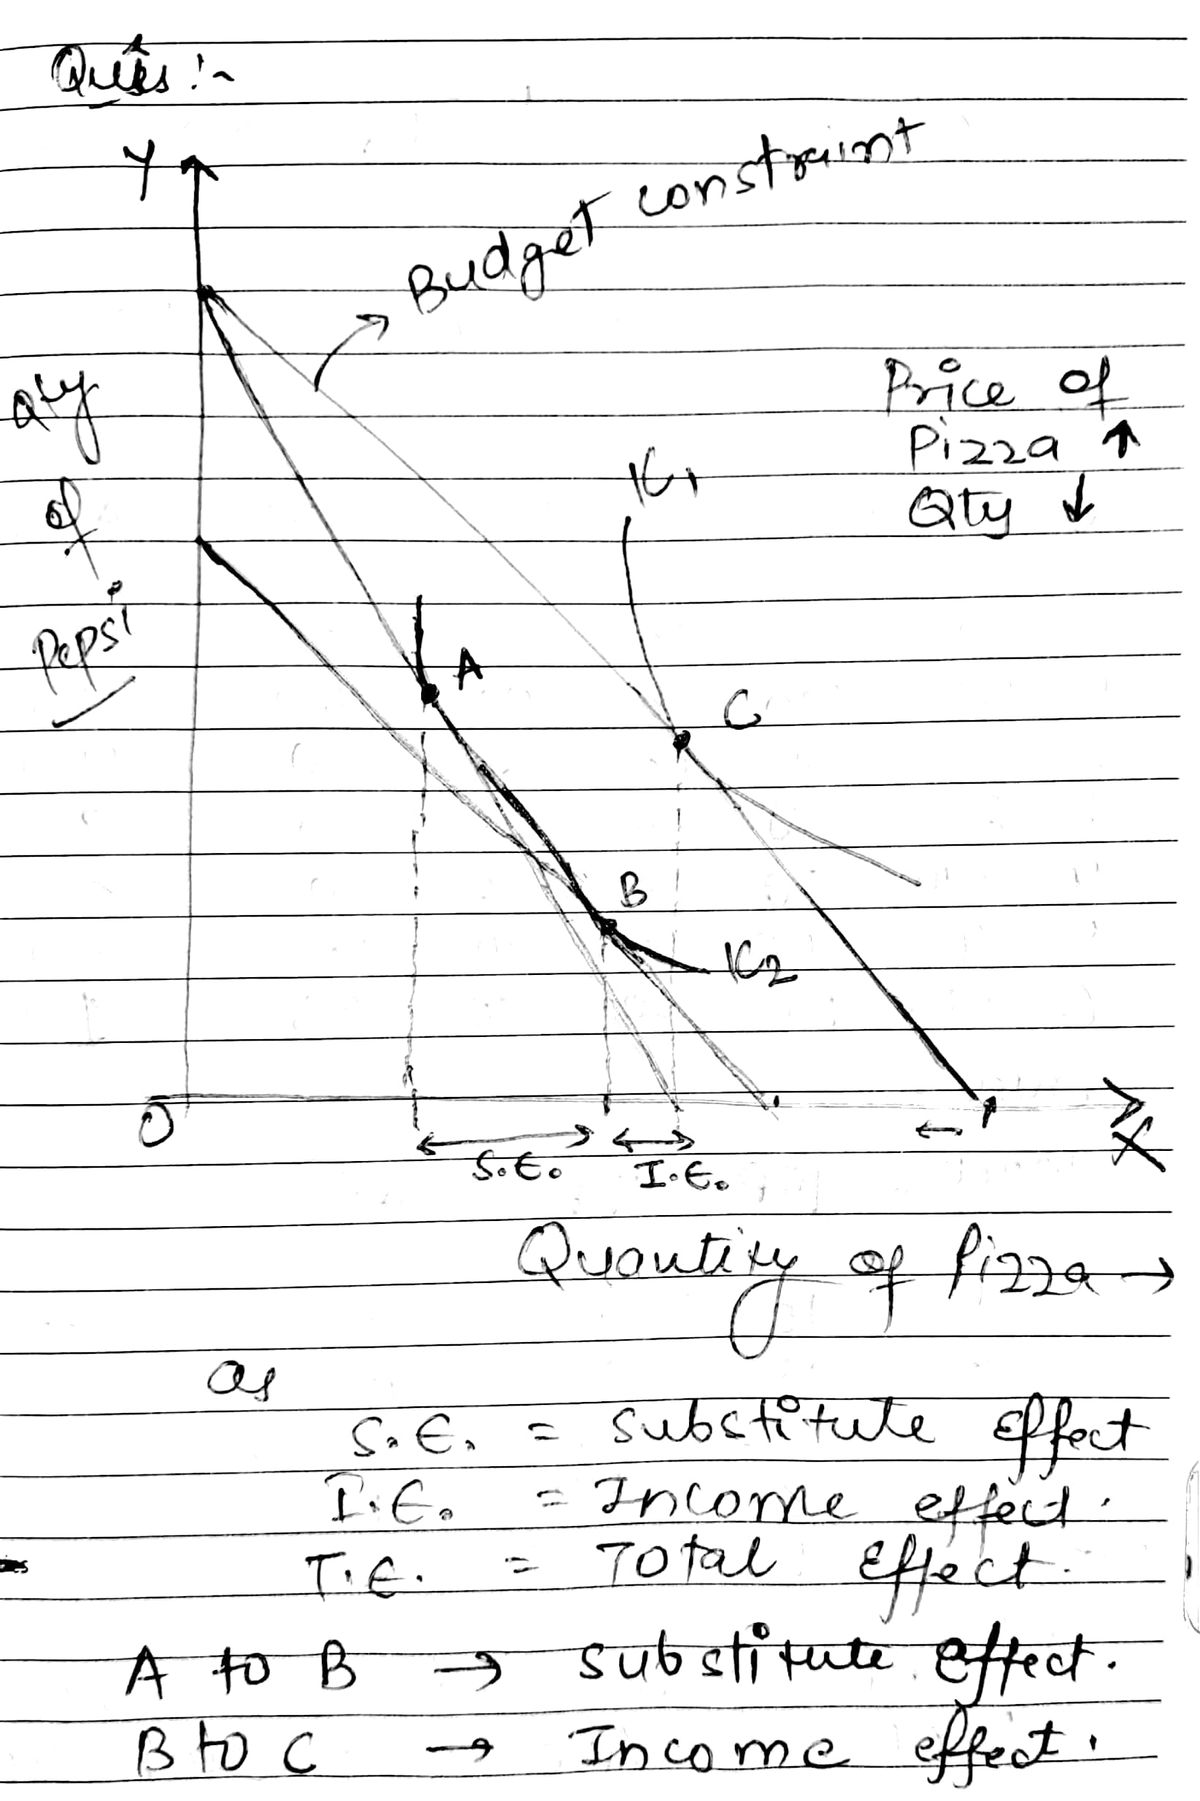 Ques :-
Y
Budget constraint
Qty
of
Pepsi
Price of
Pizza ↑
Qty ↓
IC1
A
C
B
IC2
O
X
S.E.
I.E.
Quantity of Pizza →
as
S.E. = Substitute Effect
I.E. = Income effect.
T.E. = Total Effect.
A to B → Substitute effect.
B to C → Income effect.